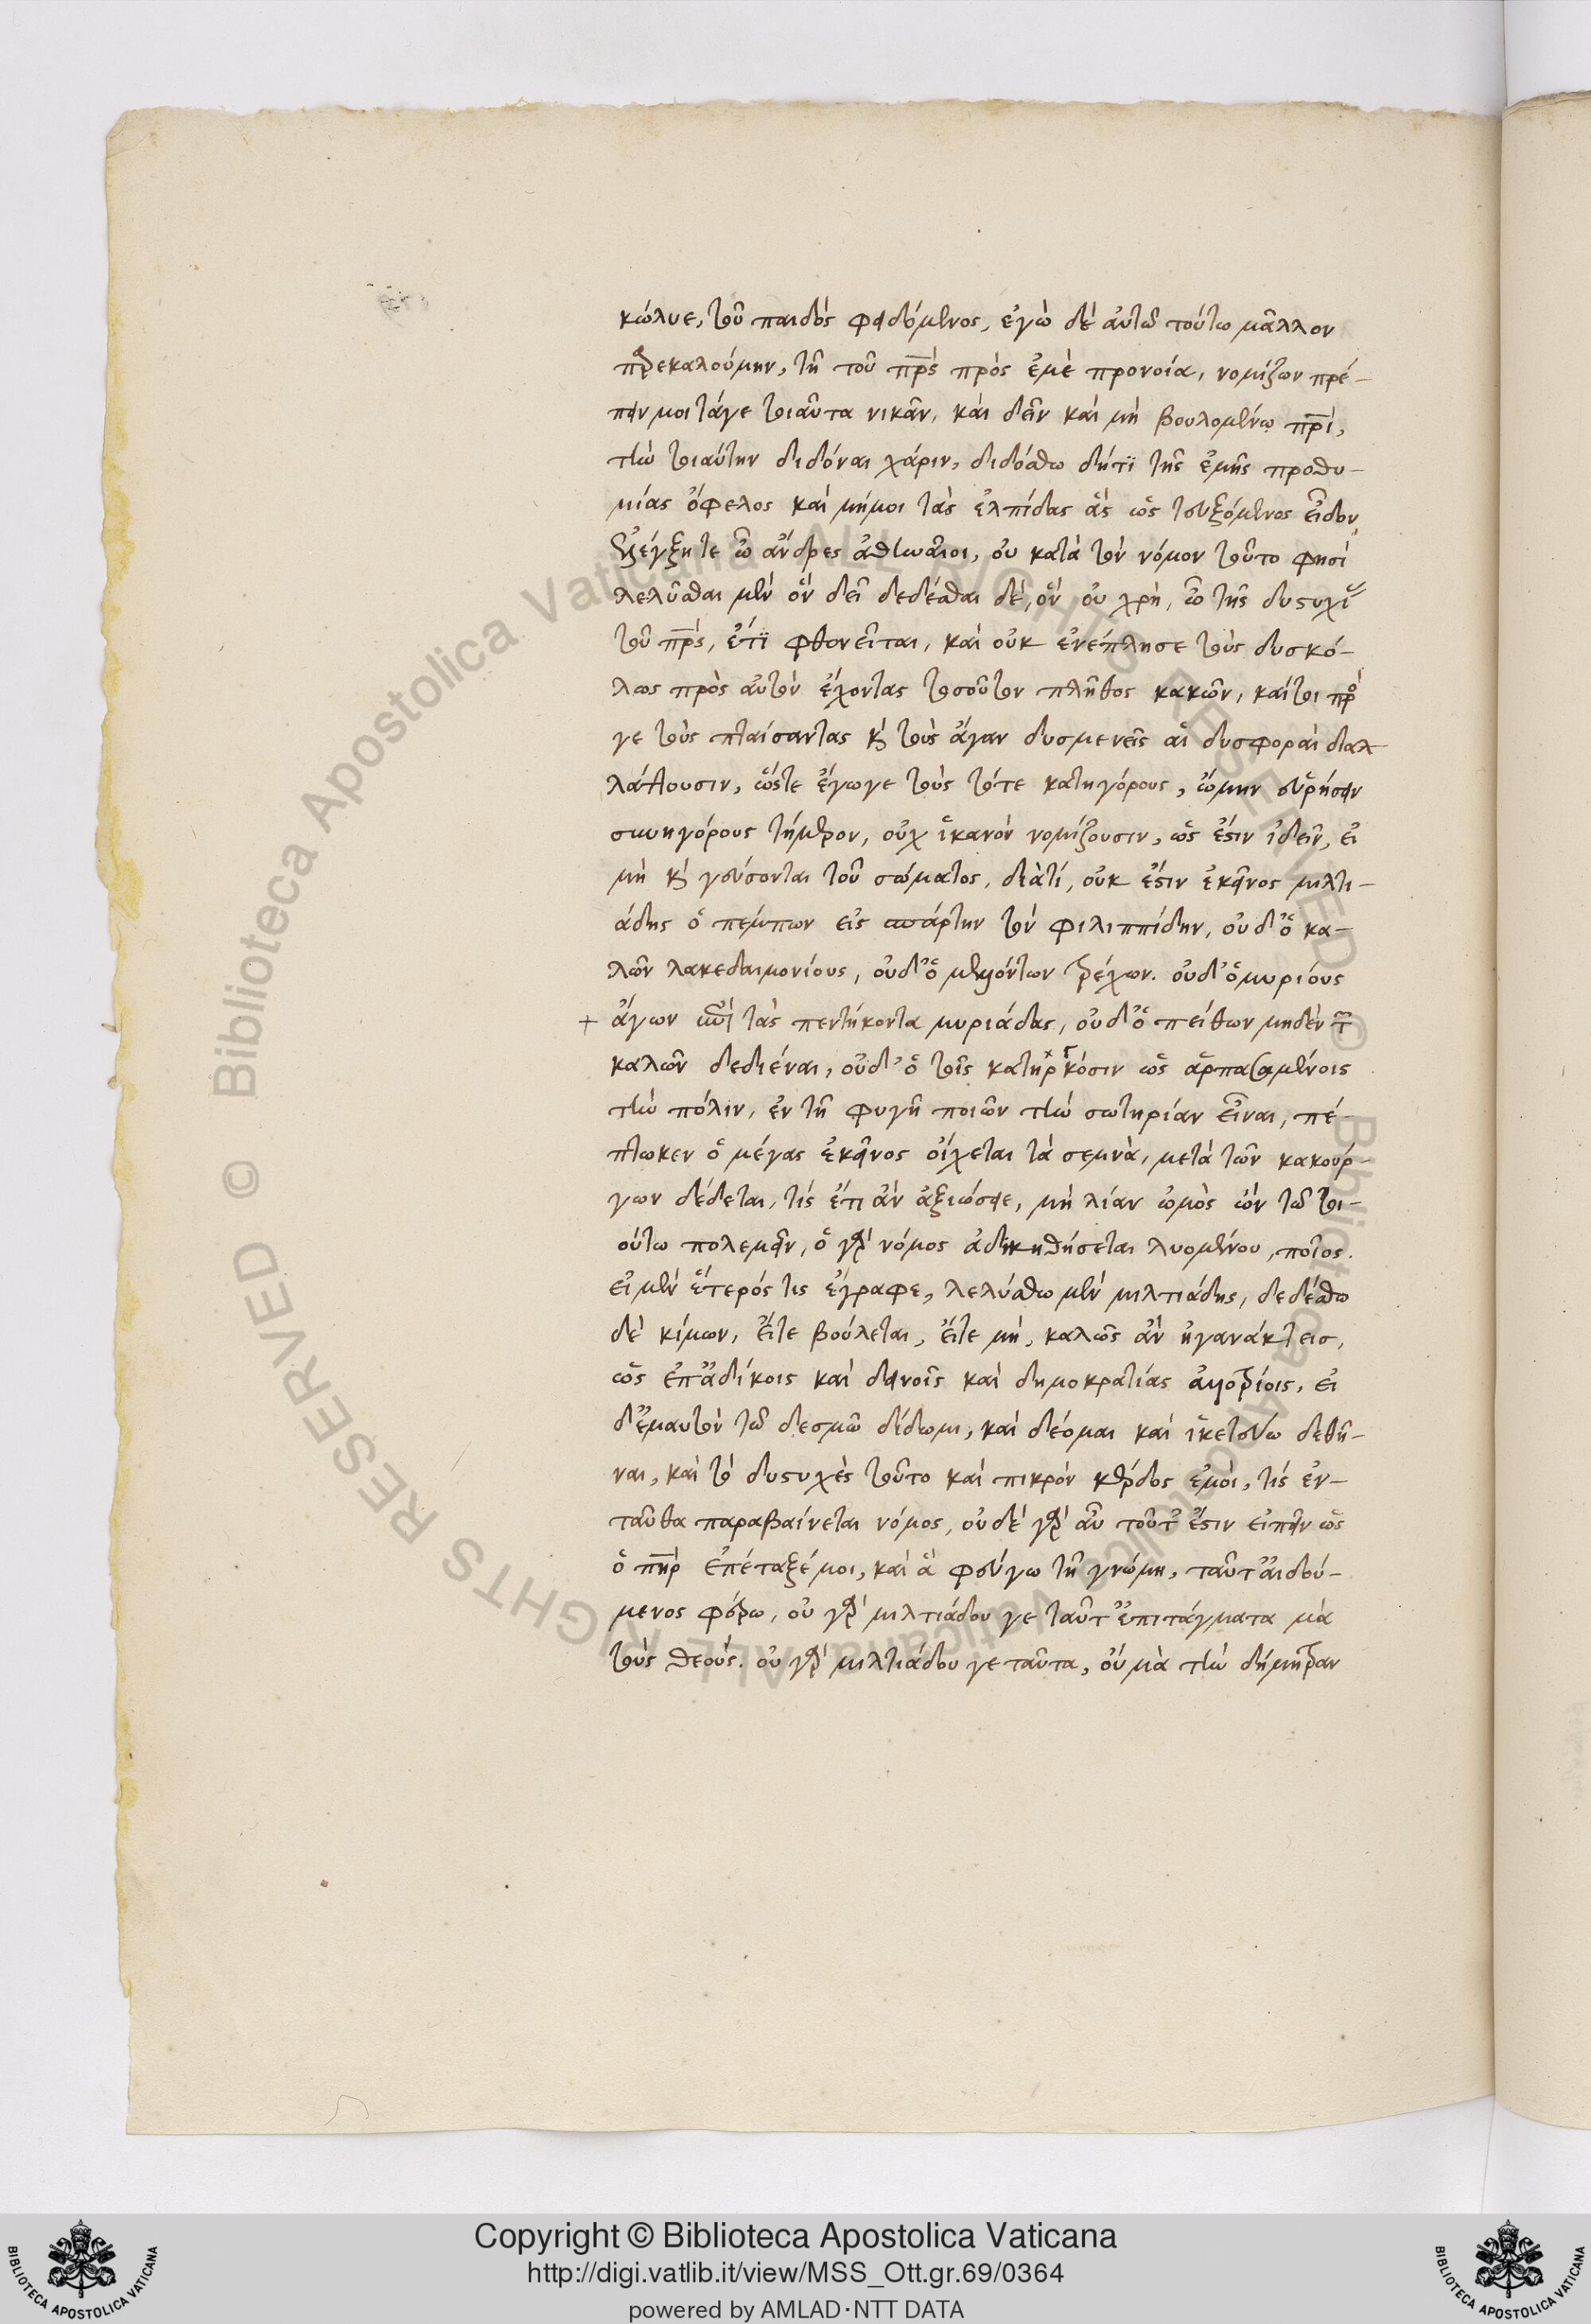 κώλυε, τοῦ παιδὸς φειδόμενος, ἐγὼ δὲ αὐτῶ τούτω μᾶλλον
προεκαλούμην, τῆ τοῦ πρς πρὸς ἐμὲ προνοία, νομίζων πρέ-
πειν μοι τάγε τοιαῦτα νικᾶν, καὶ δεῖν καὶ μὴ βουλομένω πρὶ,
τὴν τοιαύτην διδόναι χάριν, διδόσθω δήτϊ τῆς ἐμῆς προθυ-
μίας ὄφελος καὶ μήμοι τὰς ἐλπίδας ἃς ὡς τευξόμενος εἶδον
ἐξελέγξητε ὦ ἄνδρες ἀθηναῖοι, οὐ κατὰ τὸν νόμον τοῦτο φησὶ
λελῦσθαι μὲν ὃν δεῖ δεδέσθαι δὲ, ὃν οὐ χρὴ, ὢ τῆς δυστυχί
τοῦ πρς, ἔτϊ φθονεῖται, καὶ οὐκ ἐνέπλησε τοὺς δυσκό-
λως πρὸς αὐτὸν ἔχοντας τοσοῦτον πλῆθος κακῶν, καίτοι πρὸ
γε τοὺς πταίσαντας κ τοὺς ἄγαν δυσμενεῖς αἱ δυσφοραὶ διαλ
λάττουσιν, ὥστε ἔγωγε τοὺς τότε κατηγόρους, ὤμην εὑρήσειν
συνηγόρους τήμερον, οὐχ ἱκανὸν νομίζουσιν, ὡς ἔστιν ἰδεῖν, εἰ
μὴ κ γεύσονται τοῦ σώματος, διὰτί, οὐκ ἔστιν ἐκεῖνος μιλτι-
άδης ὁ πέμπων εἰς σπάρτην τὸν φιλιππίδην, οὐδ' ὁ κα-
λῶν λακεδαιμονίους, οὐδ' ὁ μελλόντων τρέχων. οὐδ' ὁ μυρίους
+ ἄγων ἐπὶ τὰς πεντήκοντα μυριάδας, οὐδ' ὁ πείθων μηδὲν τ
καλῶν δεδιέναι, οὐδ' ὁ τοῖς κατηρκόσιν ὡς ἁρπασαμένοις
τὴν πόλιν, ἐν τῆ φυγῆ ποιῶν τὴν σωτηρίαν εἶναι, πέ-
πτωκεν ὁ μέγας ἐκεῖνος οἴχεται τὰ σεμνὰ, μετὰ τῶν κακούρ-
γων δέδεται, τίς ἔτι ἂν ἀξιώσειε, μὴ λίαν ὠμὸς ὢν τῶ τοι-
ούτω πολεμεῖν, ὁ γὰρ νόμος ἀδικηθήσεται λυομένου, ποῖος.
εἰ μὲν ἕτερός τις ἔγραφε, λελύσθω μὲν μιλτιάδης, δεδέσθω
δὲ κίμων, εἴτε βούλεται, εἴτε μὴ, καλῶς ἂν ἠγανάκτεισ,
ὡς ἐπ' ἀδίκοις καὶ δεινοῖς καὶ δημοκρατίας ἀλλοτρίοις, εἰ
δ' ἐμαυτὸν τῶ δεσμῶ δίδωμι, καὶ δέομαι καὶ ἱκετεύω δεθῆ-
ναι, καὶ τὸ δυστυχὲς τοῦτο καὶ πικρὸν κέρδος ἐμοὶ, τίς ἐν-
ταῦθα παραβαίνεται νόμος, οὐδὲ γὰρ αὖ τοῦτ' ἔστιν εἰπεῖν ὡς
ὁ πηρ ἐπέταξέ μοι, καὶ ἃ φεύγω τῆ γνώμη, ταῦτ' αἰδού-
μενος φέρω, οὐ γὰρ μιλτιάδου γε ταῦτ' ἐπιτάγματα μὰ
τοὺς θεούς. οὐ γὰρ μιλτιάδου γε ταῦτα, οὐ μὰ τὴν δήμητραν
Copyright © Biblioteca Apostolica Vaticana
http://digi.vatlib.it/view/MSS_Ott.gr.69/0364
powered by AMLAD·NTT DATA
BIBLIOTECA APOSTOLICA VATICANA
BIBLIOTECA APOSTOLICA VATICANA
© Biblioteca Apostolica Vaticana ALL RIGHTS RESERVED
© Biblioteca Apostolica Vaticana ALL RIGHTS RESERVED